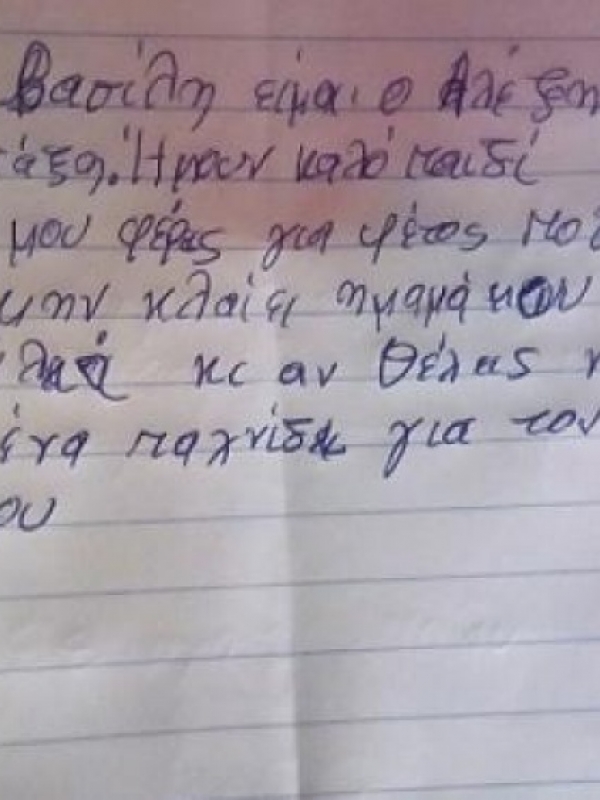 Βασίλη είμαι ο Αλέξη
τάξη. Ήμουν καλό παιδί
μου φέρεις για φέτος
μην κλαίει η μαμά μου
κι αν θέλεις
ένα παιχνίδι για τον
ου